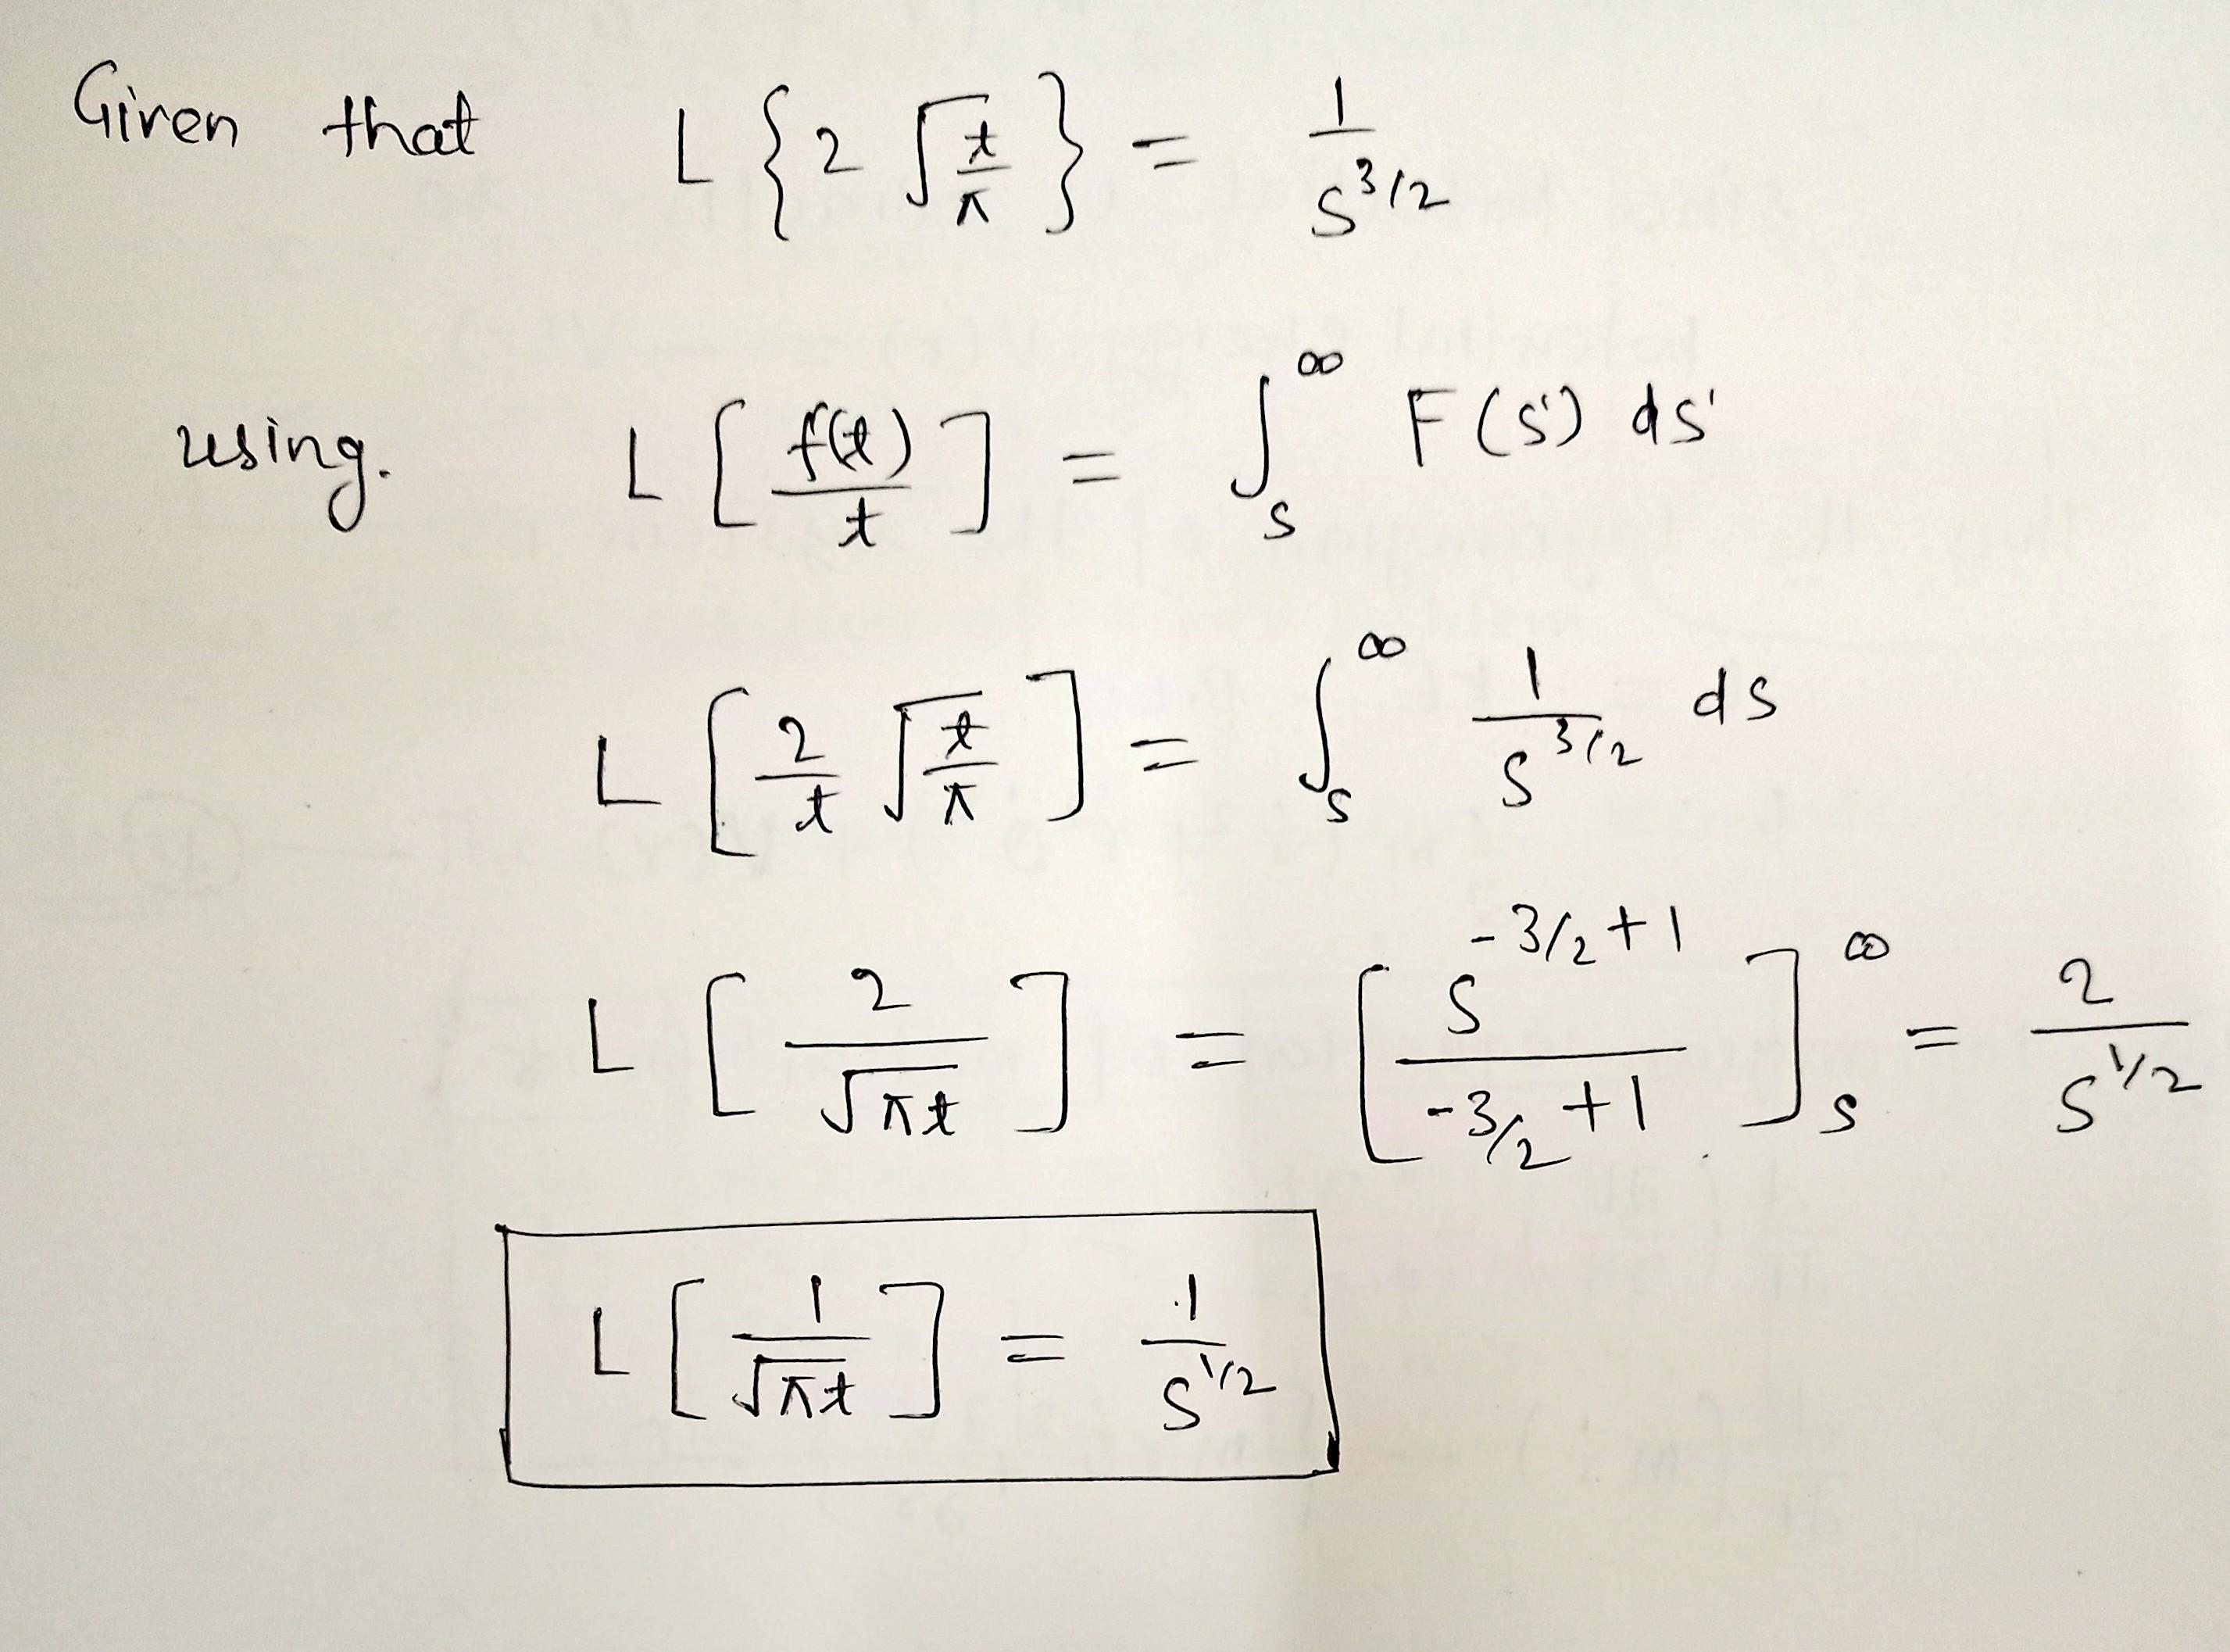 Given that L {2 √(t/π)} = 1/s^(3/2)
using. L [f(t)/t] = ∫_s^∞ F(s') ds'
L [2/t √(t/π)] = ∫_s^∞ 1/s^(3/2) ds
L [2/√(πt)] = [s^(-3/2+1)/(-3/2+1)]_s^∞ = 2/s^(1/2)
L [1/√(πt)] = 1/s^(1/2)